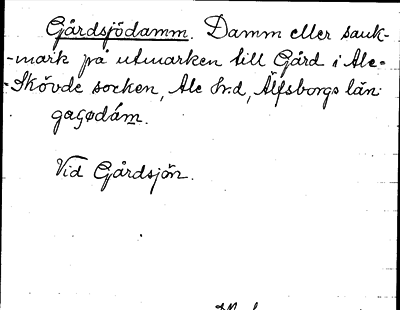 Gårdsjödamm. Damm eller sank-
-mark på utmarken till Gård i Ale-
-Skövde socken, Ale hrd, Älfsborgs län.
Vid Gårdsjön.